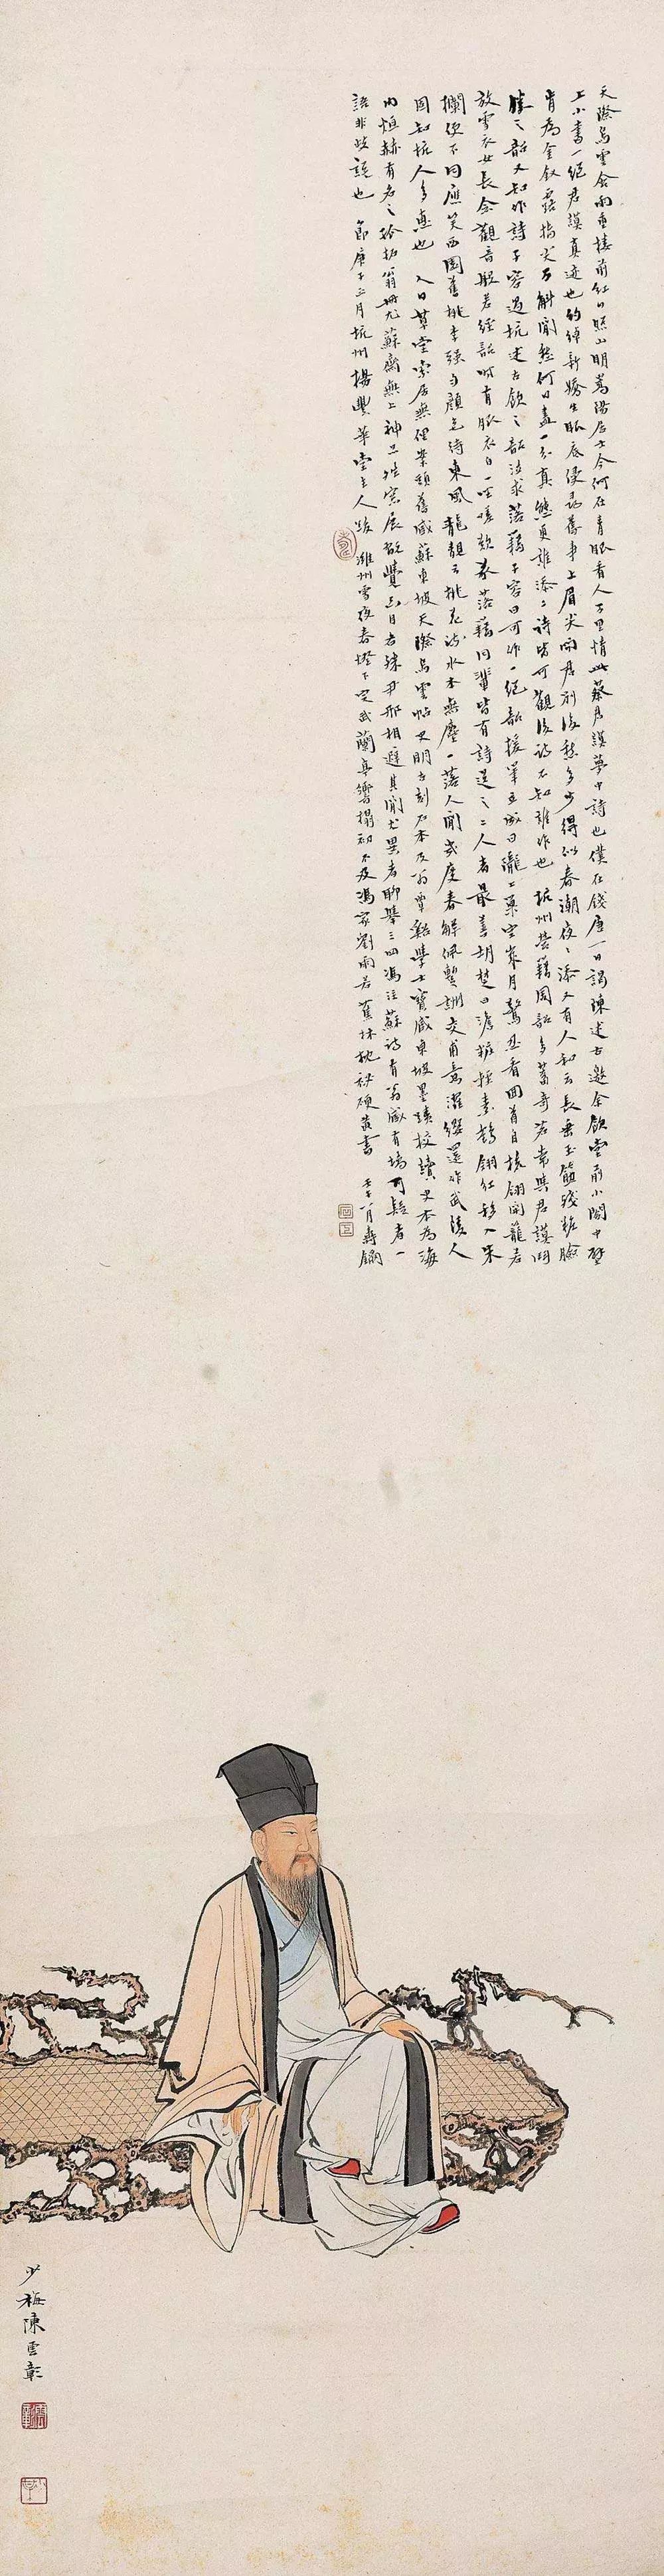 天際烏雲含雨重樓前紅日照山明嵩陽居士今何在青眼看人万里情此蔡君謨夢中詩也僕在錢唐一日謁陳述古邀余飲堂前小閣中壁
上小書一絕君謨真迹也約綽新嬌生眼底侵尋舊事上眉尖問君別後愁多少得似春潮夜〻添又有人和云長垂玉筯殘粧臉
肯為金釵露指尖万斛閒愁何日盡一分真態更難添二詩皆可觀後詩不知誰作也 杭州營籍周韶多蓄奇茗常與君謨鬭
勝之韶又知作詩子容過杭述古飲之韶泣求落籍子容曰可作一絕韶援筆立成曰隴上巢空歲月驚忍看回首自梳翎開籠若
放雪衣女長念觀音般若經韶時有服衣白一坐嗟歎遂落籍同輩皆有詩送之二人者最善胡楚曰淡粧輕素鶴翎紅移入朱
欄便不同應笑西園舊桃李強勻顏色待東風龍靚云桃花流水本無塵一落人間幾度春解佩暫酬交甫意濯纓還作武陵人
固知杭人多惠也 人日草堂索居無俚案頭舊藏蘇東坡天際烏雲帖 明古刻石本及翁覃谿學士寶藏東坡墨蹟校讀 本為海
內烜赫有名之 翁 蘇齋無上神品 展 目者 相避其間尤異者聊舉三四馮注蘇詩有 藏有 可疑者一
語非妄誕也 節庚子三月杭州楊豐華堂主人跋 濰州雪夜春燈下 蘭亭響搨初不及馮家劉雨若蕉林秘硬黃書 壬子 月壽鑈
少梅陳雲彰